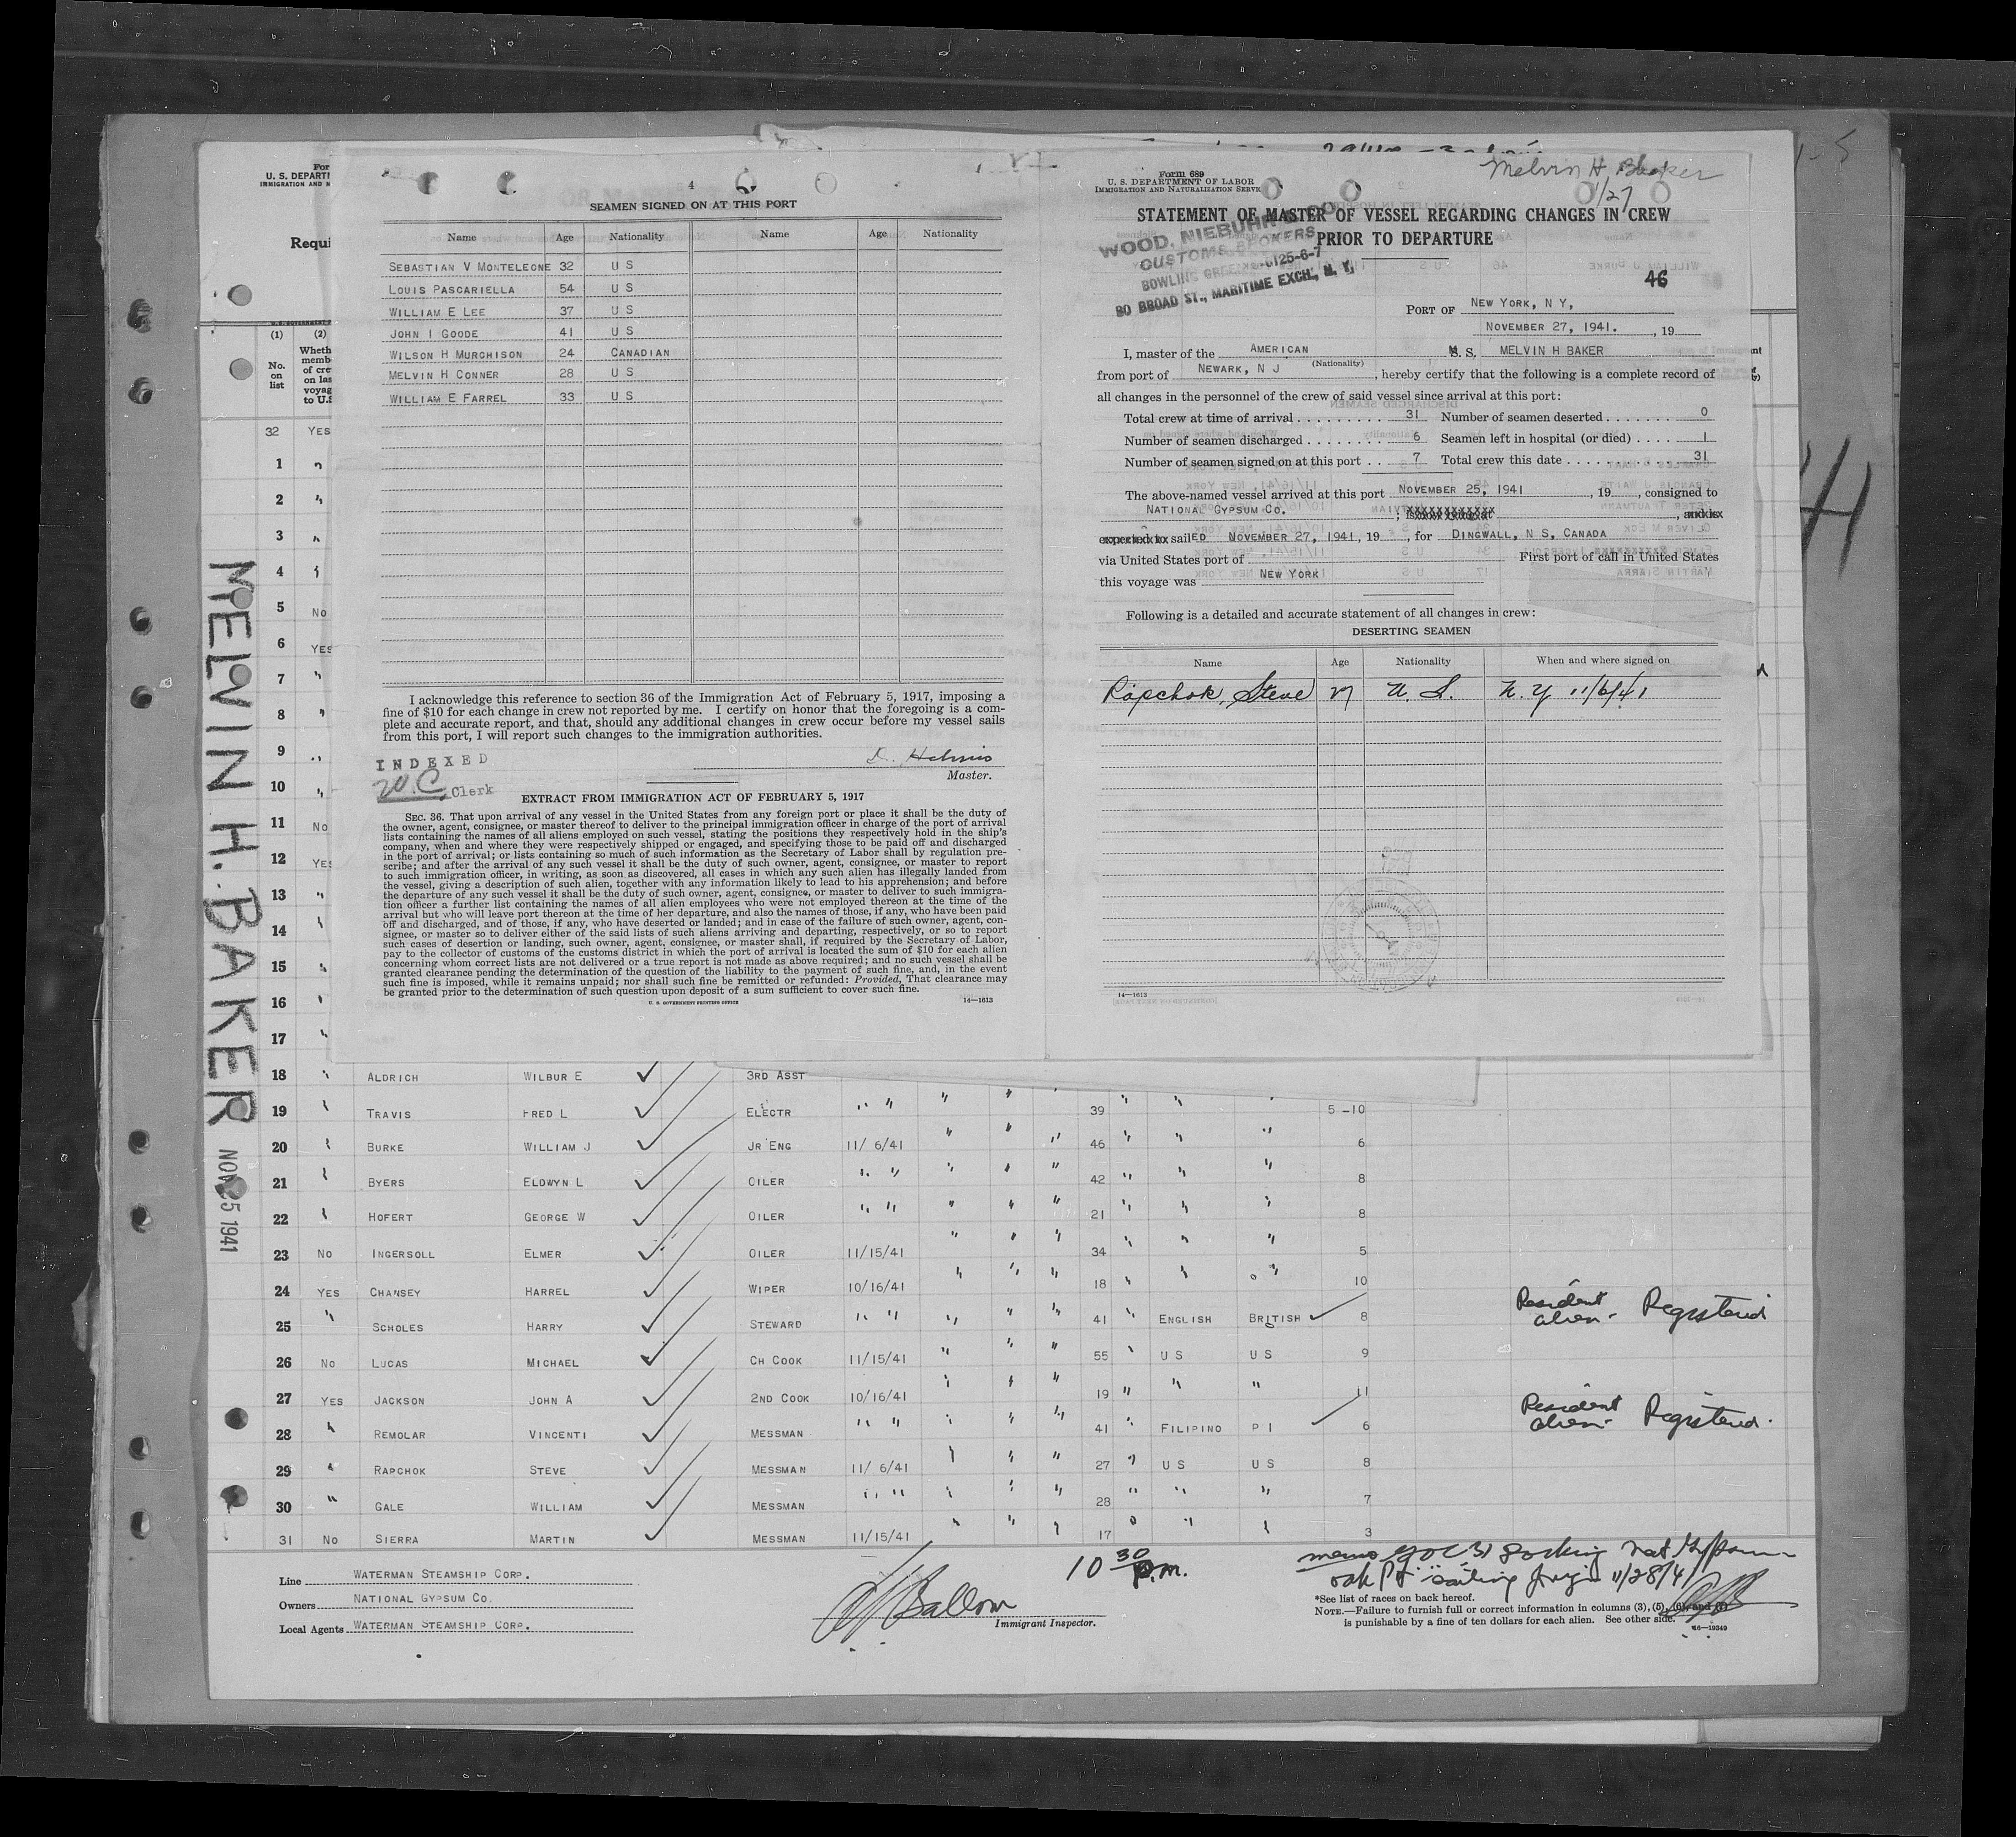 4
SEAMEN SIGNED ON AT THIS PORT
Name Age Nationality Name Age Nationality
SEBASTIAN V MONTELEONE 32 U S
LOUIS PASCARIELLA 54 U S
WILLIAM E LEE 37 U S
JOHN I GOODE 41 U S
WILSON H MURCHISON 24 CANADIAN
MELVIN H CONNER 28 U S
WILLIAM E FARREL 33 U S
I acknowledge this reference to section 36 of the Immigration Act of February 5, 1917, imposing a
fine of $10 for each change in crew not reported by me. I certify on honor that the foregoing is a com-
plete and accurate report, and that, should any additional changes in crew occur before my vessel sails
from this port, I will report such changes to the immigration authorities.
Master.
INDEXED
W.C. Clerk
EXTRACT FROM IMMIGRATION ACT OF FEBRUARY 5, 1917
SEC. 36. That upon arrival of any vessel in the United States from any foreign port or place it shall be the duty of
the owner, agent, consignee, or master thereof to deliver to the principal immigration officer in charge of the port of arrival
lists containing the names of all aliens employed on such vessel, stating the positions they respectively hold in the ship's
company, when and where they were respectively shipped or engaged, and specifying those to be paid off and discharged
in the port of arrival; or lists containing so much of such information as the Secretary of Labor shall by regulation pre-
scribe; and after the arrival of any such vessel it shall be the duty of such owner, agent, consignee, or master to report
to such immigration officer, in writing, as soon as discovered, all cases in which any such alien has illegally landed from
the vessel, giving a description of such alien, together with any information likely to lead to his apprehension; and before
the departure of any such vessel it shall be the duty of such owner, agent, consignee, or master to deliver to such immigra-
tion officer a further list containing the names of all alien employees who were not employed thereon at the time of the
arrival but who will leave port thereon at the time of her departure, and also the names of those, if any, who have been paid
off and discharged, and of those, if any, who have deserted or landed; and in case of the failure of such owner, agent, con-
signee, or master so to deliver either of the said lists of such aliens arriving and departing, respectively, or so to report
such cases of desertion or landing, such owner, agent, consignee, or master shall, if required by the Secretary of Labor,
pay to the collector of customs of the customs district in which the port of arrival is located the sum of $10 for each alien
concerning whom correct lists are not delivered or a true report is not made as above required; and no such vessel shall be
granted clearance pending the determination of the question of the liability to the payment of such fine, and, in the event
such fine is imposed, while it remains unpaid; nor shall such fine be remitted or refunded: Provided, That clearance may
be granted prior to the determination of such question upon deposit of a sum sufficient to cover such fine.
U. S. GOVERNMENT PRINTING OFFICE 14—1613
Melvin H. Baker
1/27
Form 689
U. S. DEPARTMENT OF LABOR
IMMIGRATION AND NATURALIZATION SERVICE
STATEMENT OF MASTER OF VESSEL REGARDING CHANGES IN CREW
PRIOR TO DEPARTURE
WOOD, NIEBUHR & CO
CUSTOMS BROKERS
BOWLING GREEN 9-6125-6-7
80 BROAD ST., MARITIME EXCH., N. Y.
46
PORT OF NEW YORK, N Y,
NOVEMBER 27, 1941. , 19
I, master of the AMERICAN M. S. MELVIN H BAKER
(Nationality)
from port of NEWARK, N J , hereby certify that the following is a complete record of
all changes in the personnel of the crew of said vessel since arrival at this port:
Total crew at time of arrival 31 Number of seamen deserted 0
Number of seamen discharged 6 Seamen left in hospital (or died) 1
Number of seamen signed on at this port 7 Total crew this date 31
The above-named vessel arrived at this port NOVEMBER 25, 1941 , 19 , consigned to
NATIONAL GYPSUM CO. ; is now lying at , and is
expected to sailED NOVEMBER 27, 1941, 19 , for DINGWALL, N S, CANADA
via United States port of First port of call in United States
this voyage was NEW YORK
Following is a detailed and accurate statement of all changes in crew:
DESERTING SEAMEN
Name Age Nationality When and where signed on
Rapchok, Steve 27 U. S. N. Y 11/6/41
14—1613
For
U. S. DEPARTM
IMMIGRATION AND N
Requi
(1) (2)
No. on list
Wheth
memb
of cre
on las
voyag
to U.S
MELVIN H. BAKER
NOV 25 1941
32 YES
1 "
2 "
3 "
4 "
5 NO
6 YES
7 "
8 "
9 "
10 "
11 NO
12 YES
13 "
14 "
15 "
16 "
17 "
18 " ALDRICH WILBUR E 3RD ASST
19 " TRAVIS FRED L ELECTR " " " " " 39 " " " 5-10
20 " BURKE WILLIAM J JR ENG 11/ 6/41 " " " 46 " " " 6
21 " BYERS ELDWYN L OILER " " " " " 42 " " " 8
22 " HOFERT GEORGE W OILER " " " " " 21 " " " 8
23 NO INGERSOLL ELMER OILER 11/15/41 " " " 34 " " " 5
24 YES CHANSEY HARREL WIPER 10/16/41 " " " 18 " " " 10
25 " SCHOLES HARRY STEWARD " " " " " 41 " ENGLISH BRITISH 8 Resident alien - Registered
26 NO LUCAS MICHAEL CH COOK 11/15/41 " " " 55 " U S U S 9
27 YES JACKSON JOHN A 2ND COOK 10/16/41 " " " 19 " " " 11
28 " REMOLAR VINCENTI MESSMAN " " " " " 41 " FILIPINO P I 6 Resident alien - Registered.
29 " RAPCHOK STEVE MESSMAN 11/ 6/41 " " " 27 " U S U S 8
30 " GALE WILLIAM MESSMAN " " " " " 28 " " " 7
31 NO SIERRA MARTIN MESSMAN 11/15/41 " " " 17 " " " 3
Line WATERMAN STEAMSHIP CORP.
Owners NATIONAL GYPSUM CO.
Local Agents WATERMAN STEAMSHIP CORP.
10 30 p.m.
Immigrant Inspector.
*See list of races on back hereof.
NOTE.—Failure to furnish full or correct information in columns (3), (5), (6), and (7)
is punishable by a fine of ten dollars for each alien. See other side.
16—19349